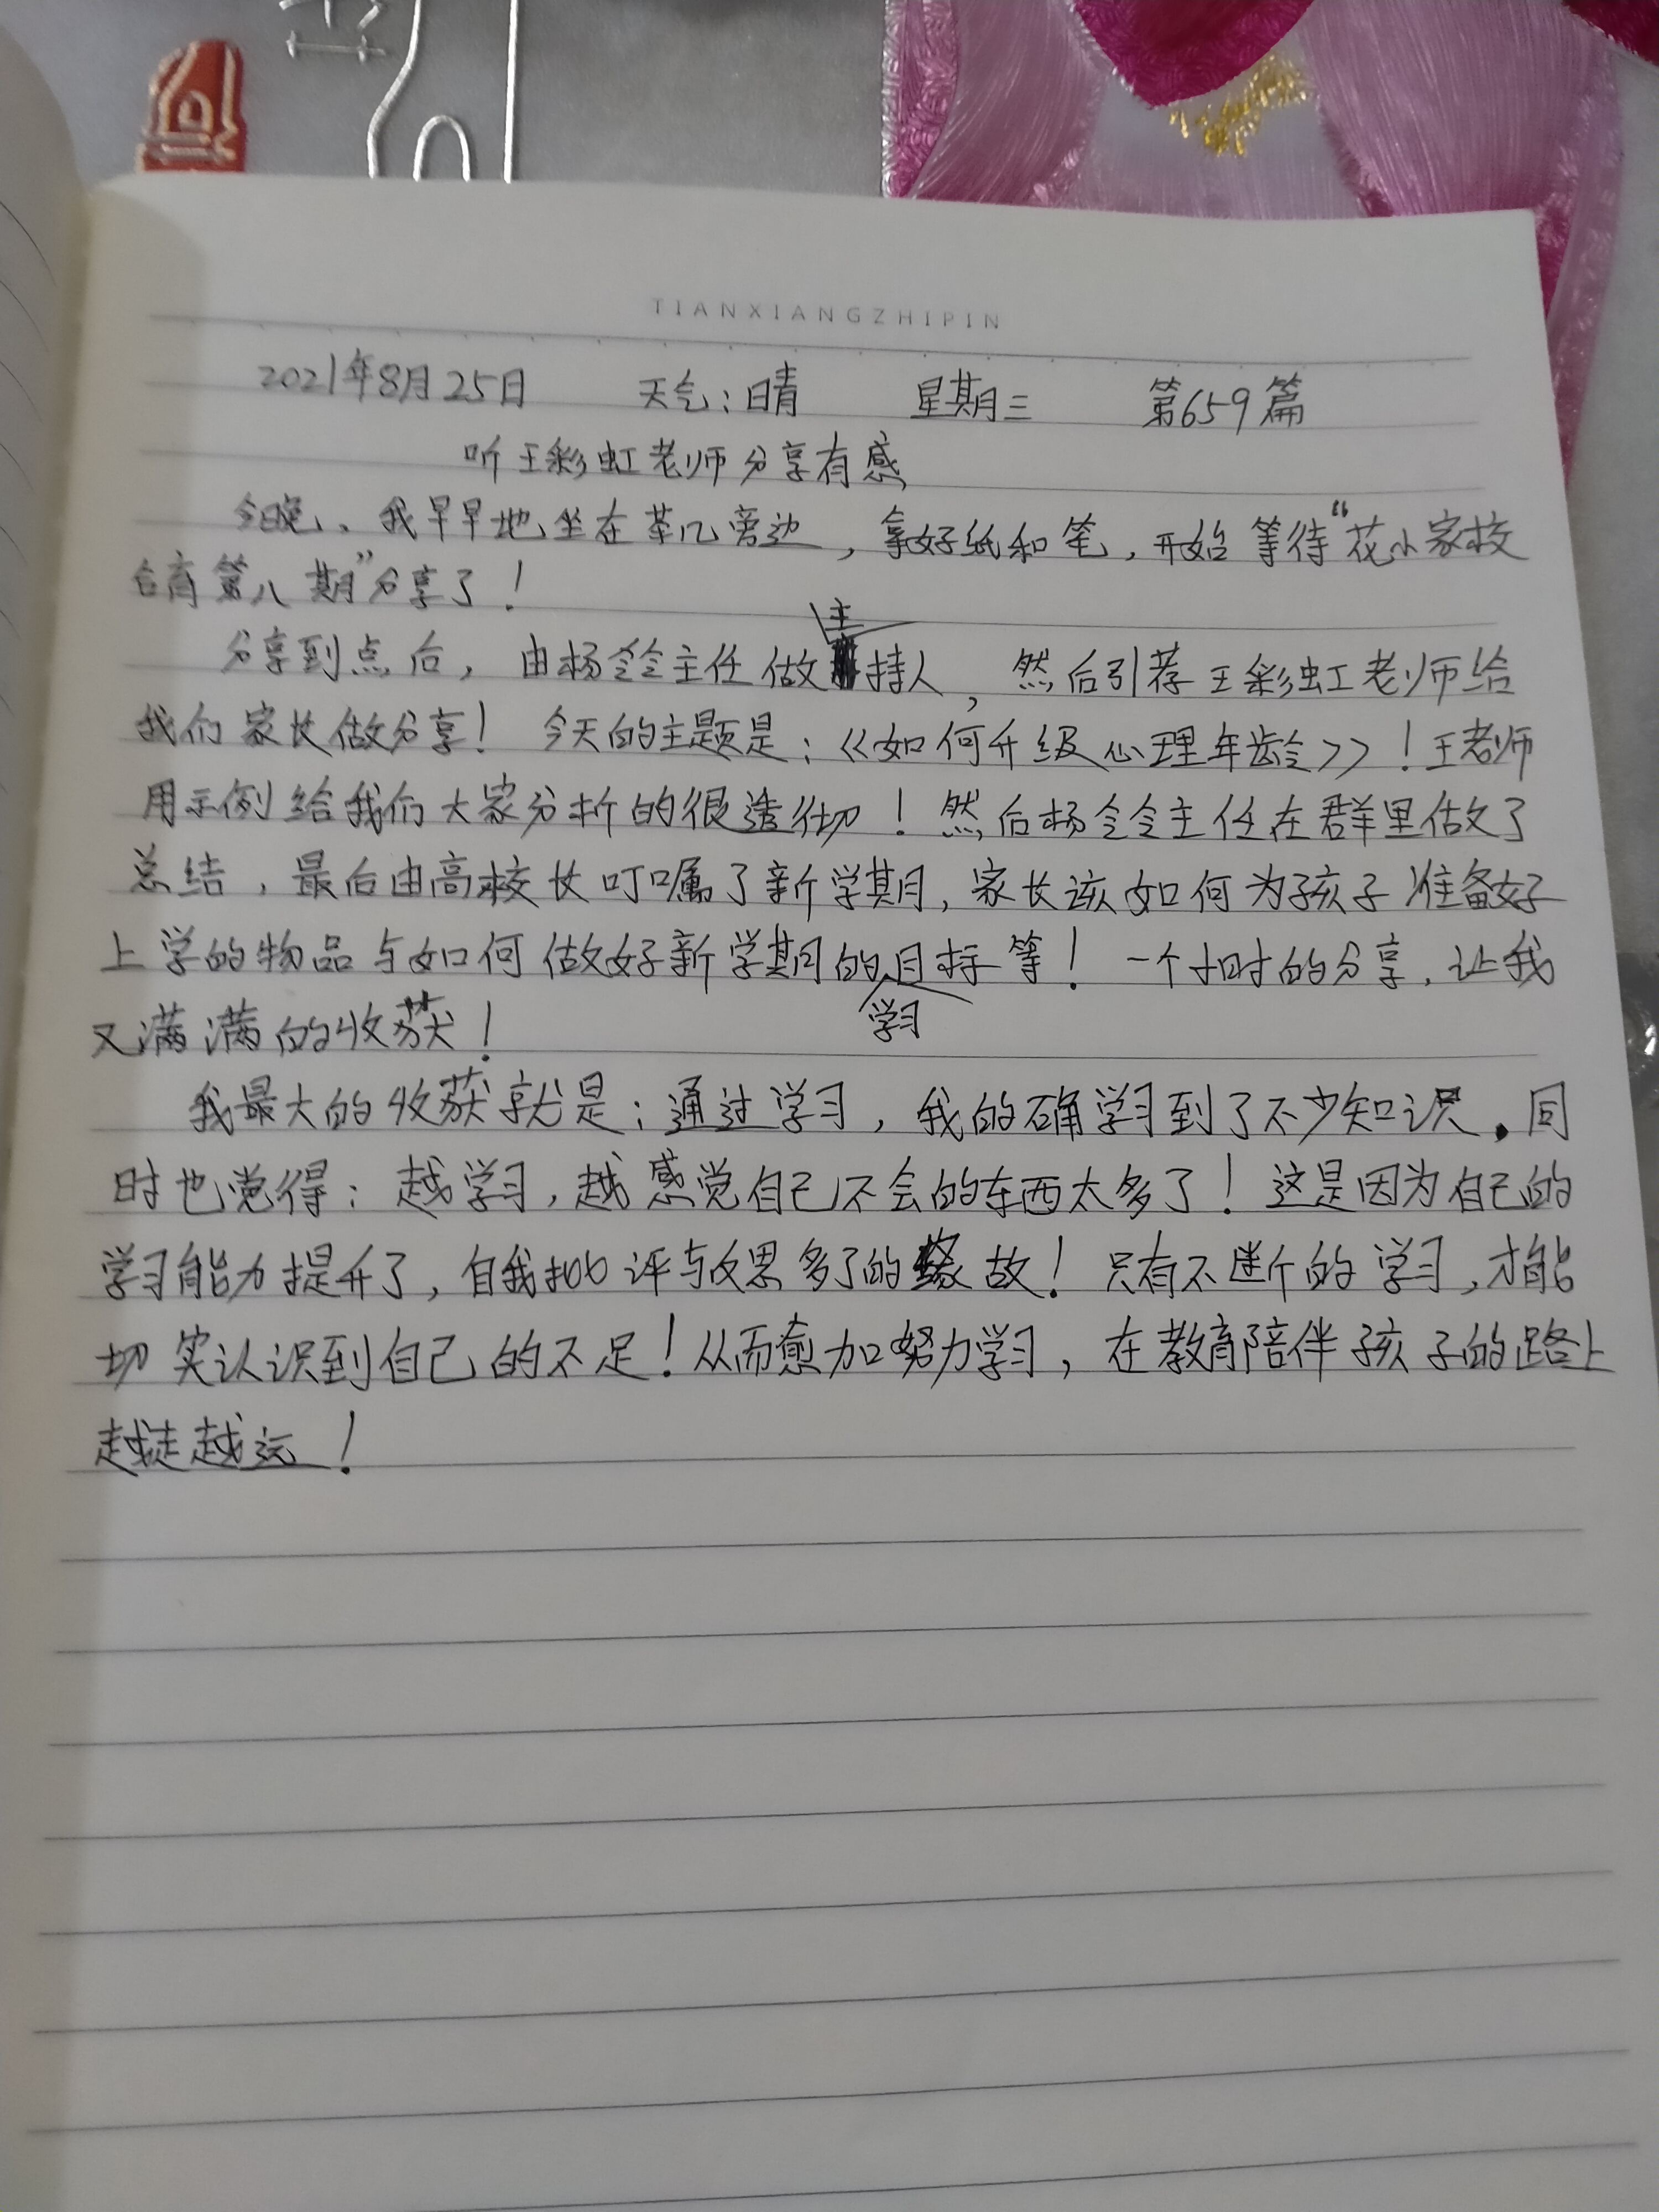 TIANXIANGZHIPIN
2021年8月25日 天气：晴 星期三 第659篇
听王彩虹老师分享有感
今晚、我早早地坐在茶几旁边，拿好纸和笔，开始等待“花小家校
合育第八期”分享了！
分享到点后，由杨令令主任做主持人，然后引荐王彩虹老师给
我们家长做分享！今天的主题是：《如何升级心理年龄》！王老师
用示例给我们大家分析的很透彻！然后杨令令主任在群里做了
总结，最后由高校长叮嘱了新学期，家长该如何为孩子准备好
上学的物品与如何做好新学期的学习目标等！一个小时的分享，让我
又满满的收获！
我最大的收获就是：通过学习，我的确学习到了不少知识。同
时也觉得：越学习，越感觉自己不会的东西太多了！这是因为自己的
学习能力提升了，自我批评与反思多了的缘故！只有不断的学习，才能
切实认识到自己的不足！从而愈加努力学习，在教育陪伴孩子的路上
越走越远！